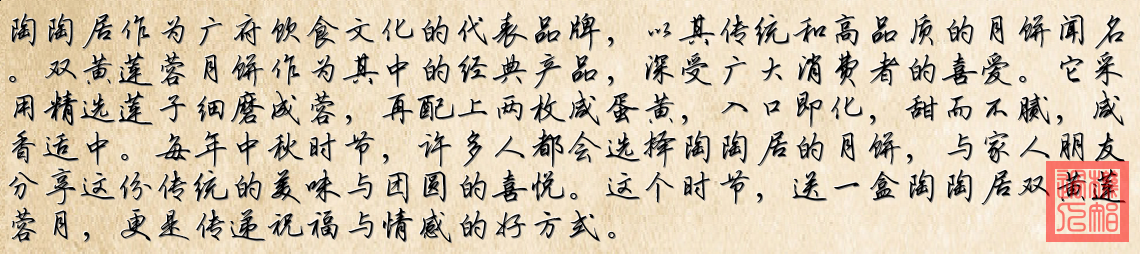 陶陶居作为广府饮食文化的代表品牌，以其传统和高品质的月饼闻名
。双黄莲蓉月饼作为其中的经典产品，深受广大消费者的喜爱。它采
用精选莲子细磨成蓉，再配上两枚咸蛋黄，入口即化，甜而不腻，咸
香适中。每年中秋时节，许多人都会选择陶陶居的月饼，与家人朋友
分享这份传统的美味与团圆的喜悦。这个时节，送一盒陶陶居双黄莲
蓉月，更是传递祝福与情感的好方式。